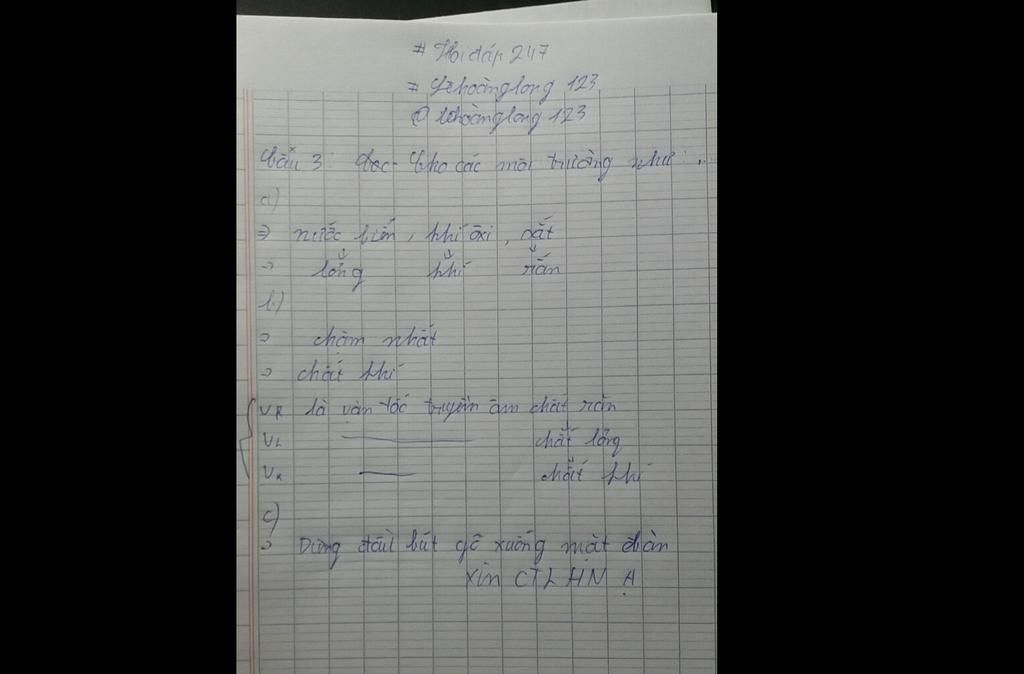 # Hỏi đáp 247
# Lehoànglong 123
@ lehoànglong 123
Câu 3: Đọc- Cho các môi trường như: ...
a)
⇒ nước biển, khí ôxi, đất
⇒ lỏng khí rắn
b)
⇒ chậm nhất
⇒ chất khí
VR là vận tốc truyền âm chất rắn
VL chất lỏng
VK chất khí
c)
⇒ Dùng đầu bút gõ xuống mặt bàn
xin CTLHN Ạ